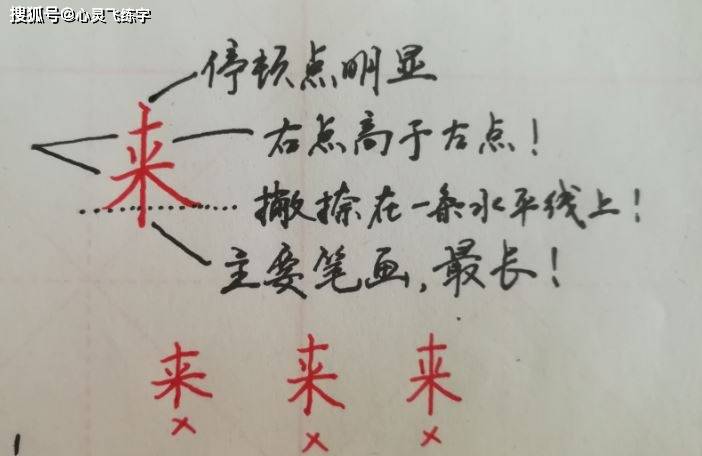 搜狐号@心灵飞练字
停顿点明显
来
右点高于左点！
撇捺在一条水平线上！
主要笔画，最长！
来 来 来
× × ×